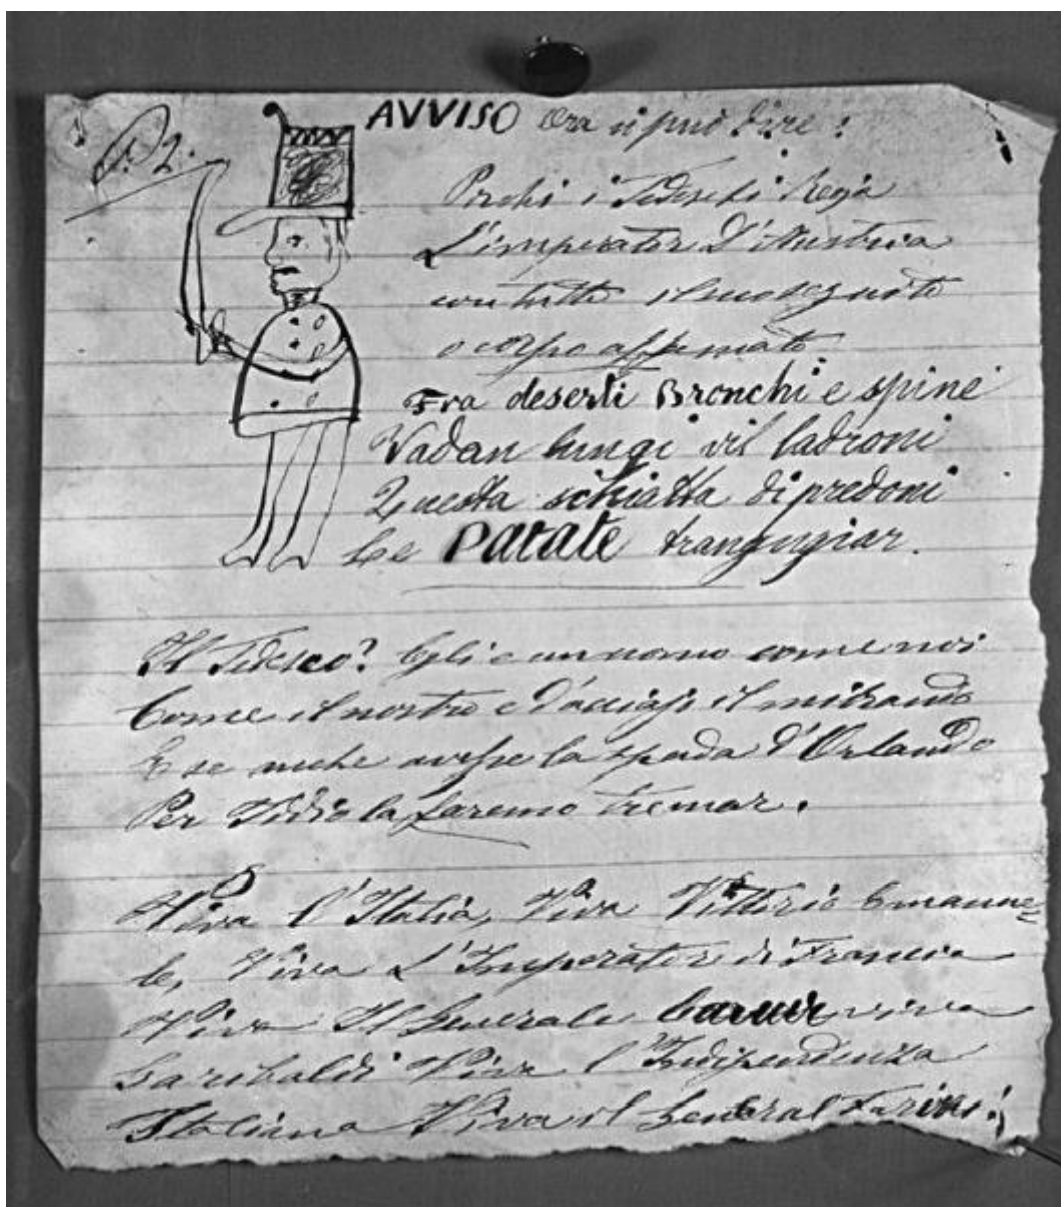 P. 2.
AVVISO Ora si può dire:
Perchi i Tedeschi Regja
L'imperator D'Austria
con tutto il suo seguito
o corpo affamato
Fra deserti Bronchi e spine
Vadan lungi vil ladroni
Questa schiatta di predoni
Le Patate trangugiar.
Il Tedesco? Egli è un uomo come noi
Come il nostro è d'acciajo il suo brando
E se anche avesse la spada d'Orlando
Per Iddio la faremo tremar.
Viva l'Italia, Viva Vittorio Emanue=
le, Viva L'Imperator di Francia
Viva Il Generale Cavour viva
Garibaldi Viva l'Indipendenza
Italiana Viva il General Farini!